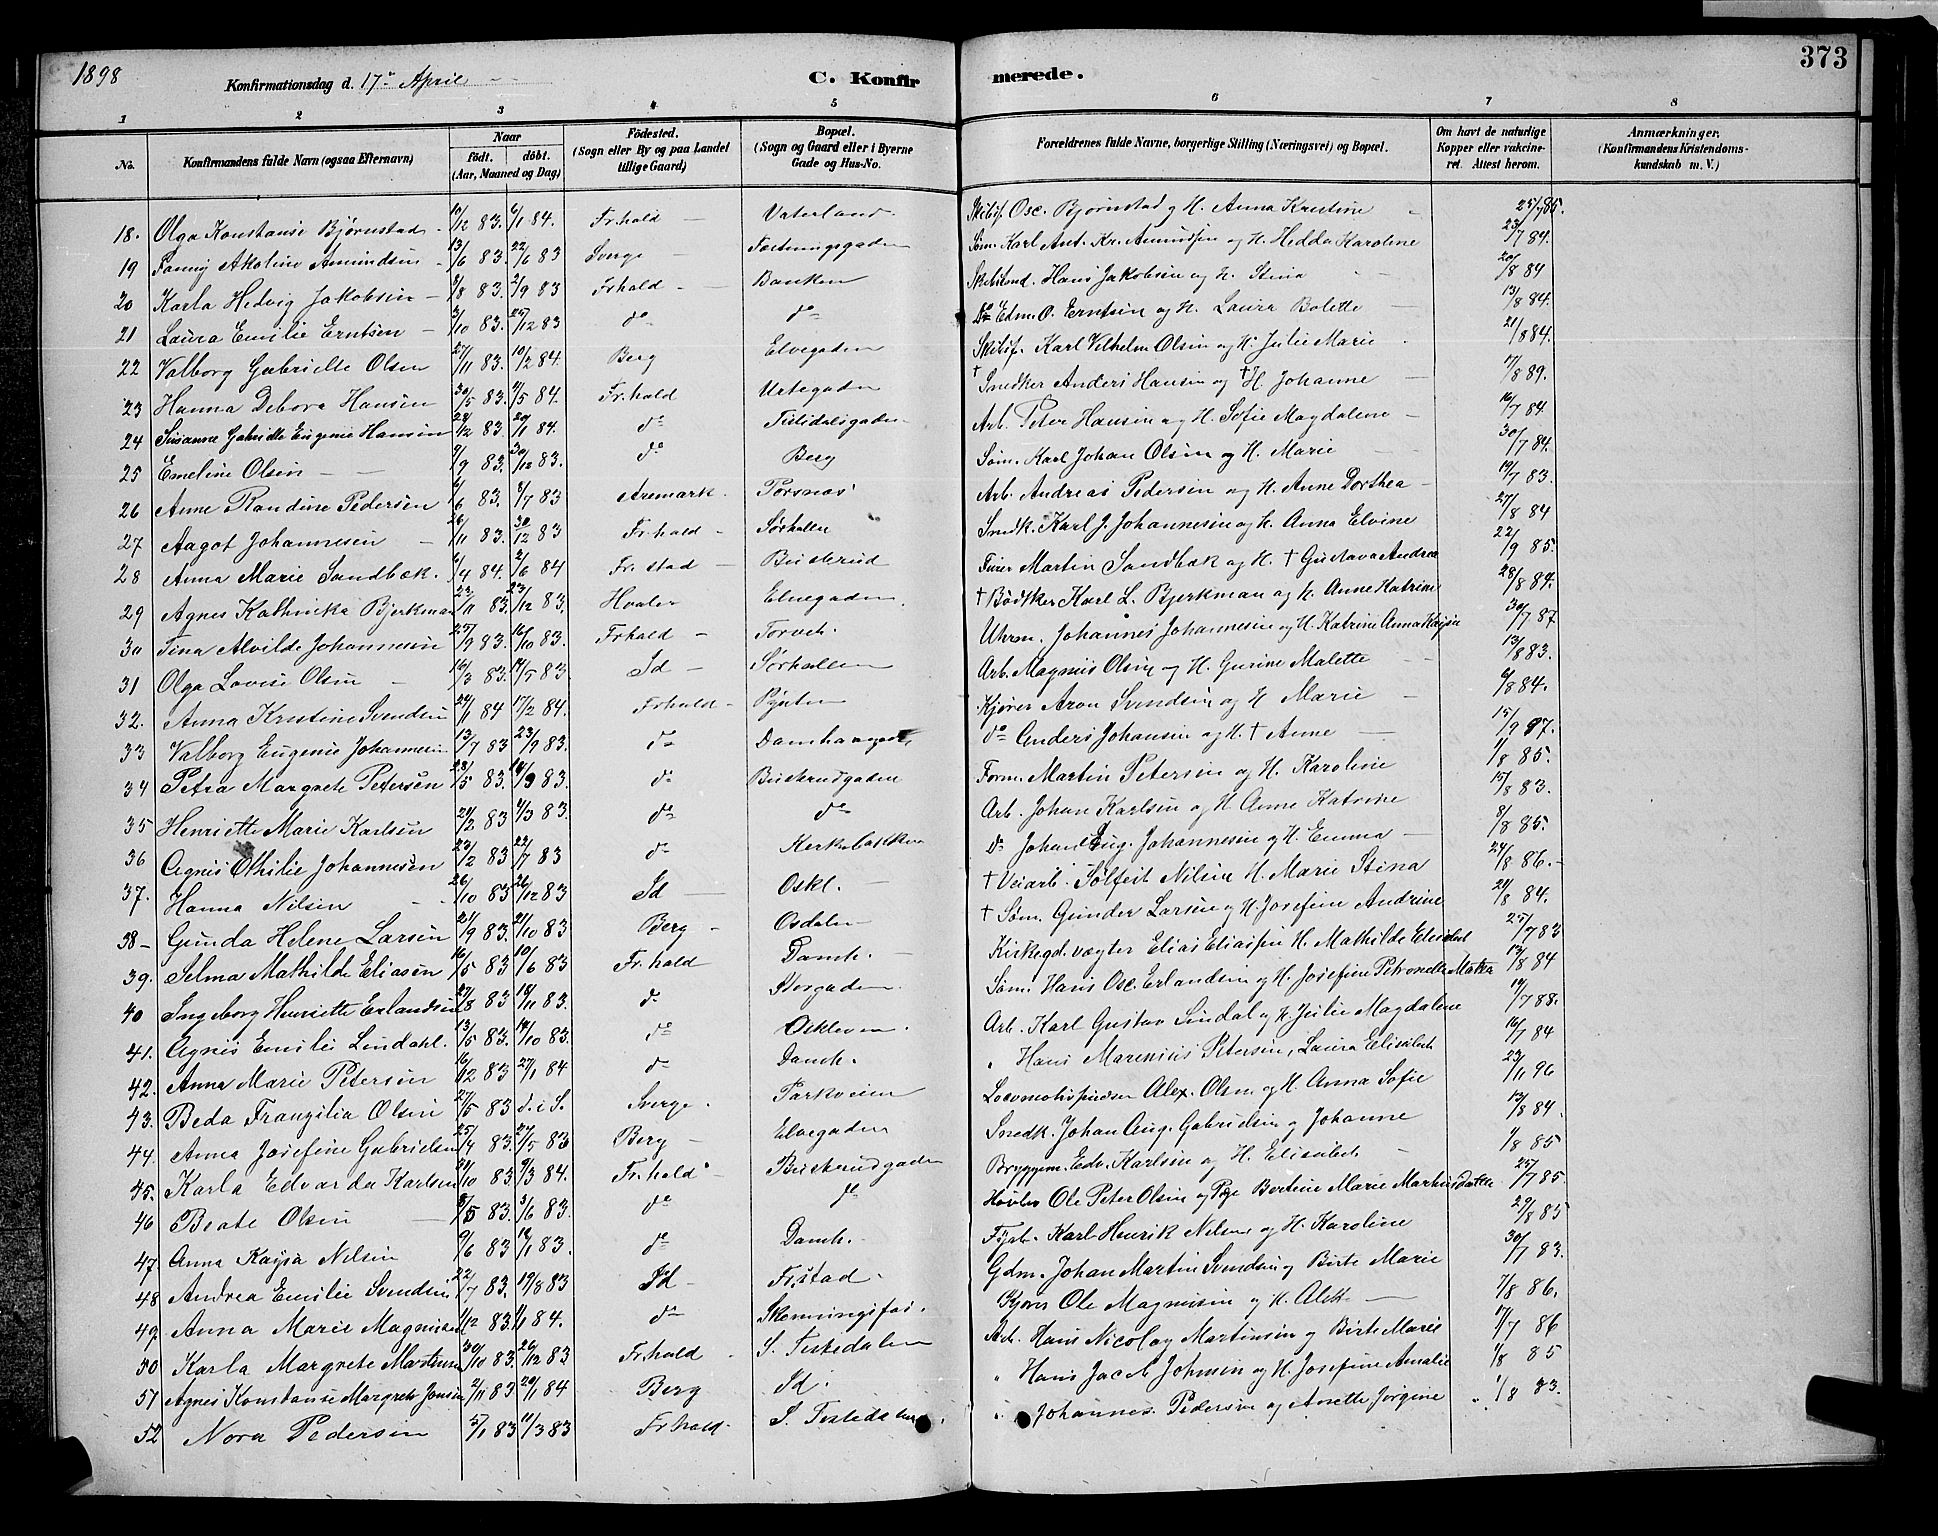 1898 Konfirmationsdag d. 17de April C. Konfirmerede. 373
1 2 3 4 5 6 7 8
No. Konfirmandens fulde Navn (ogsaa Efternavn) Naar født. døbt. (Aar, Maaned og Dag) Fødested. (Sogn eller By og paa Landet tillige Gaard) Bopæl. (Sogn og Gaard eller i Byerne Gade og Hus-No. Forældrenes fulde Navne, borgerlige Stilling (Næringsvei) og Bopæl. Om havt de naturlige Kopper eller vakcineret. Attest herom. Anmærkninger. (Konfirmandens Kristendomskundskab m. V.)
18. Olga Konstanse Bjørnstad 10/12 83. 6/1 84. Fr.hald Vaterland. Skibsf. Osc. Bjørnstad og H. Anna Kristine 25/7 85.
19 Fanny Akoline Amundsen 13/6 83. 22/6 83 Sverge Fæstningsgaden Søm. Karl Ant. Kr. Amundsen og H. Hedda Karoline 23/7 84.
20 Karla Hedvig Jakobsen 9/8 83. 2/9 83 Frhald Banken Hans Jakobsen og H. Stina 20/8 84
21 Laura Emilie Erntsen 3/10 83. 25/12 83 do do Do Edm. O. Erntsen og H. Laura Bolette 13/8 84.
22 Valborg Gabrielle Olsen 27/11 83. 10/2 84. Berg Elvegaden Skibsf. Karl Vilhelm Olsen og H. Julie Marie 21/8 84.
23 Hanna Debora Hansen 30/5 83. 11/5 84. Fr.hald Urtegaden † Snedker Anders Hansen og † H. Johanne 17/8 89.
24 Susanne Gabrielle Eugenie Hansen 28/12 83. 20/1 84. do Tistedalsgaden Arb. Peter Hansen og H. Sofie Magdalene 16/7 84.
25 Emeline Olsen 9/9 83. 30/12 83. do Berg Søm. Karl Johan Olsen og H. Marie 30/7 84.
26 Anne Randine Pedersen 6/6 83. 8/7 83 Aremark. Torsnæs Arb. Andreas Pedersen og H. Anne Dorthea 19/7 83.
27 Aagot Johannesen 26/11 83. 30/12 83 Fr.hald Sørhallen Snedk. Karl J. Johannesen og H. Anna Elvine 27/8 84
28 Anna Marie Sandbæk. 6/4 84. 2/6 84 Fr.stad Buskrud Martin Sandbæk og H. † Gustava Andrea 22/9 85.
29 Agnes Kathinka Bjerkman 23/11 83. 23/12 83. Hvaler Elvegaden. † Bødker Karl L. Bjerkman og H. Anne Katrine 28/8 84.
30 Tina Alvilde Johannesen 25/9 83. 16/10 83. Frhald Torvet. Uhrm. Johannes Johannesen og H. Katrine Anna Kajsa 30/7 87
31 Olga Lovise Olsen 16/3 83. 14/5 83 Id Sørhallen Arb. Magnus Olsen og H. Gurine Malette 13/8 83.
32. Anna Kristine Svendsen 24/1 84 17/2 84. Frhald Pynten Kjører Aron Svendsen og H. Marie 6/8 84.
33 Valborg Eugenie Johannesen 13/7 83 23/9 83. do do Anders Johansen og H. † Anne 15/9 97.
34 Petra Margrete Petersen 28/5 83. 16/9 83. do Buskrudgaden Form. Martin Petersen og H. Karoline 1/8 85.
35 Henriette Marie Karlsen 24/2 83 4/3 83. do do Arb. Johan Karlsen og H. Anne Katrine 15/8 83.
36 Agnes Othilie Johannesen 23/2 83 22/7 83 do Kirkebakken Do Johan Eug. Johannesen og H. Emma 3/8 85.
37. Hanna Nilsen 26/10 83 26/12 83 Id Oskl. † Veiarb. Sølfest Nilsen H. Marie Stina 24/8 86.
38 Gunda Helene Larsen 21/9 83. 21/10 83 Berg Osdalen † Søm. Gunder Larsen og H. Josefine Andrine 24/8 84.
39. Selma Mathilde Eliasen 16/5 83 10/6 83 Fr.hald Damh. Kirkegd.vægter Elias Eliassen H. Mathilde Elisabet 25/7 83
40 Ingeborg Henriette Erlandsen 27/8 83 18/11 83. do Storgaden. Søm. Hans Osc. Erlandsen og H. Josefine Petronelle Matea 13/8 84
41. Agnes Emilie Lindahl. 13/5 83. 14/10 83. do Oskleven. Arb. Karl Gustav Lindal og H. Julie Magdalene 19/7 88.
42. Anna Marie Petersen 16/12 83 27/1 84 do Damh. " Hans Marenius Petersen, Laura Elisabet 16/7 84
43. Beda Frangilia Olsen 27/5 83 d. i S. Sverge. Parkveien Locomotivpudser Alex. Olsen og H. Anna Sofie 23/11 96
44. Anna Josefine Gabrielsen 25/4 83. 27/5 83 Berg Elvegaden Snedk. Johan Aug. Gabrielsen og Johanne 13/8 84.
45. Karla Edvarda Karlsen 24/10 83 9/3 84. Fr.hald Buskrudgaden Bryggem. Edv. Karlsen og H. Elisabet 1/8 85
46 Beate Olsen 8/5 83. 3/6 83. do do Høvler Ole Peter Olsen og Pge Bertine Marie Martinsdatter 25/7 85
47. Anna Kajsa Nilsen 9/6 83 18/1 83. do Damh. Fyrb. Karl Henrik Nilsen og H. Karoline 29/8 85
48 Andrea Emilie Svendsen 22/7 83. 19/8 83 Id Fr.stad Gdm. Johan Martin Svendsen og Birte Marie 30/7 83.
49. Anna Marie Magnussen 1/12 83. 1/1 84. do Skonningsfos. Kjører Ole Magnusen og H. Alette 7/8 86.
50 Karla Margrete Martinsen 30/10 83. 26/12 83 Frhald S. Tistedalen Arb. Hans Nicolay Martinsen og Birte Marie 17/7 86
51 Agnes Konstanse Margrete Jonsen 2/11 83 20/1 84 Berg Id. " Hans Jacob Johnsen og H. Josefine Amalie 1/8 85
52 Nora Pedersen 5/1 83 11/3 83 Frhald S. Tistedalen " Johannes Pedersen og Anette Jørgine 1/8 83.